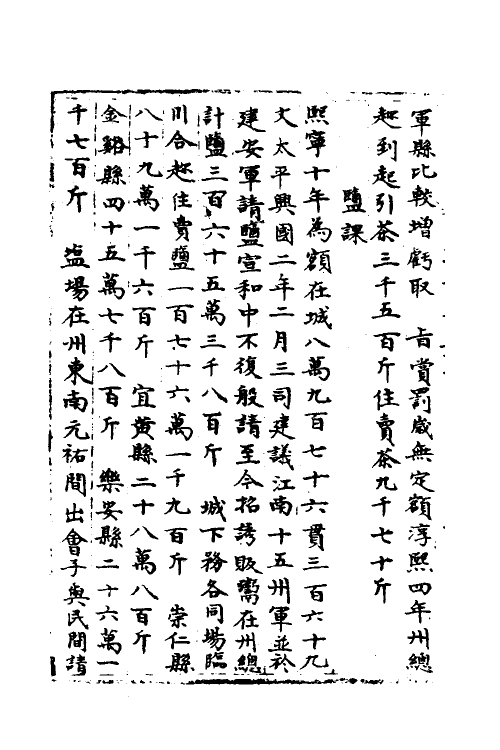 軍縣比較增虧取　旨賞罰歲無定額淳熙四年州總
趂到起引茶三千五百斤住賣茶九千七十斤
鹽課
熙寧十年為額在城八萬九百七十六貫三百六十九
文太平興國二年二月三司建議江南十五州軍並於
建安軍請鹽宣和中不復般請至今招誘販鬻在州總
計鹽三百六十五萬三千八百斤　城下務各同場臨
川合趂住賣鹽一百七十六萬一千九百斤　崇仁縣
八十九萬一千六百斤　宜黄縣二十八萬八百斤
金谿縣四十五萬七千八百斤　樂安縣二十六萬一
千七百斤　塩場在州東南元祐間出會子與民間請